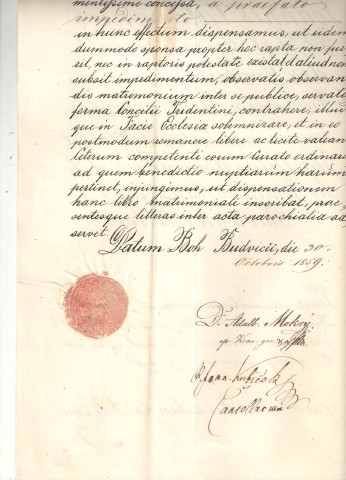 mentissime concessa, a praefato
impedimento
in hunc effectum dispensamus, ut iidem
dummodo sponsa propter hoc rapta non fue
rit, nec in raptoris potestate existat, aliud non
subsit impedimentum, observatis observan
dis matrimonium inter se publice, servata
forma Concilii Tridentini, contrahere, illud
que in Facie Ecclesia solemnizare, et in eo
postmodum remanere libere ac licite valeant
Ceterum competenti eorum Curato ordinario
ad quem benedictio nuptiarum harum
pertinet, injungimus, ut dispensationem
hanc libro matrimoniali inscribat, prae
sentesque litteras inter acta parochialia ad
servet.
Datum Boh Budvicii, die 30.
Octobris 1859.
Dr Adalb. Mokrý
Cancellarius